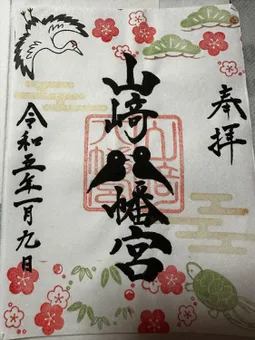 奉拝
山﨑八幡宮
令和五年一月九日